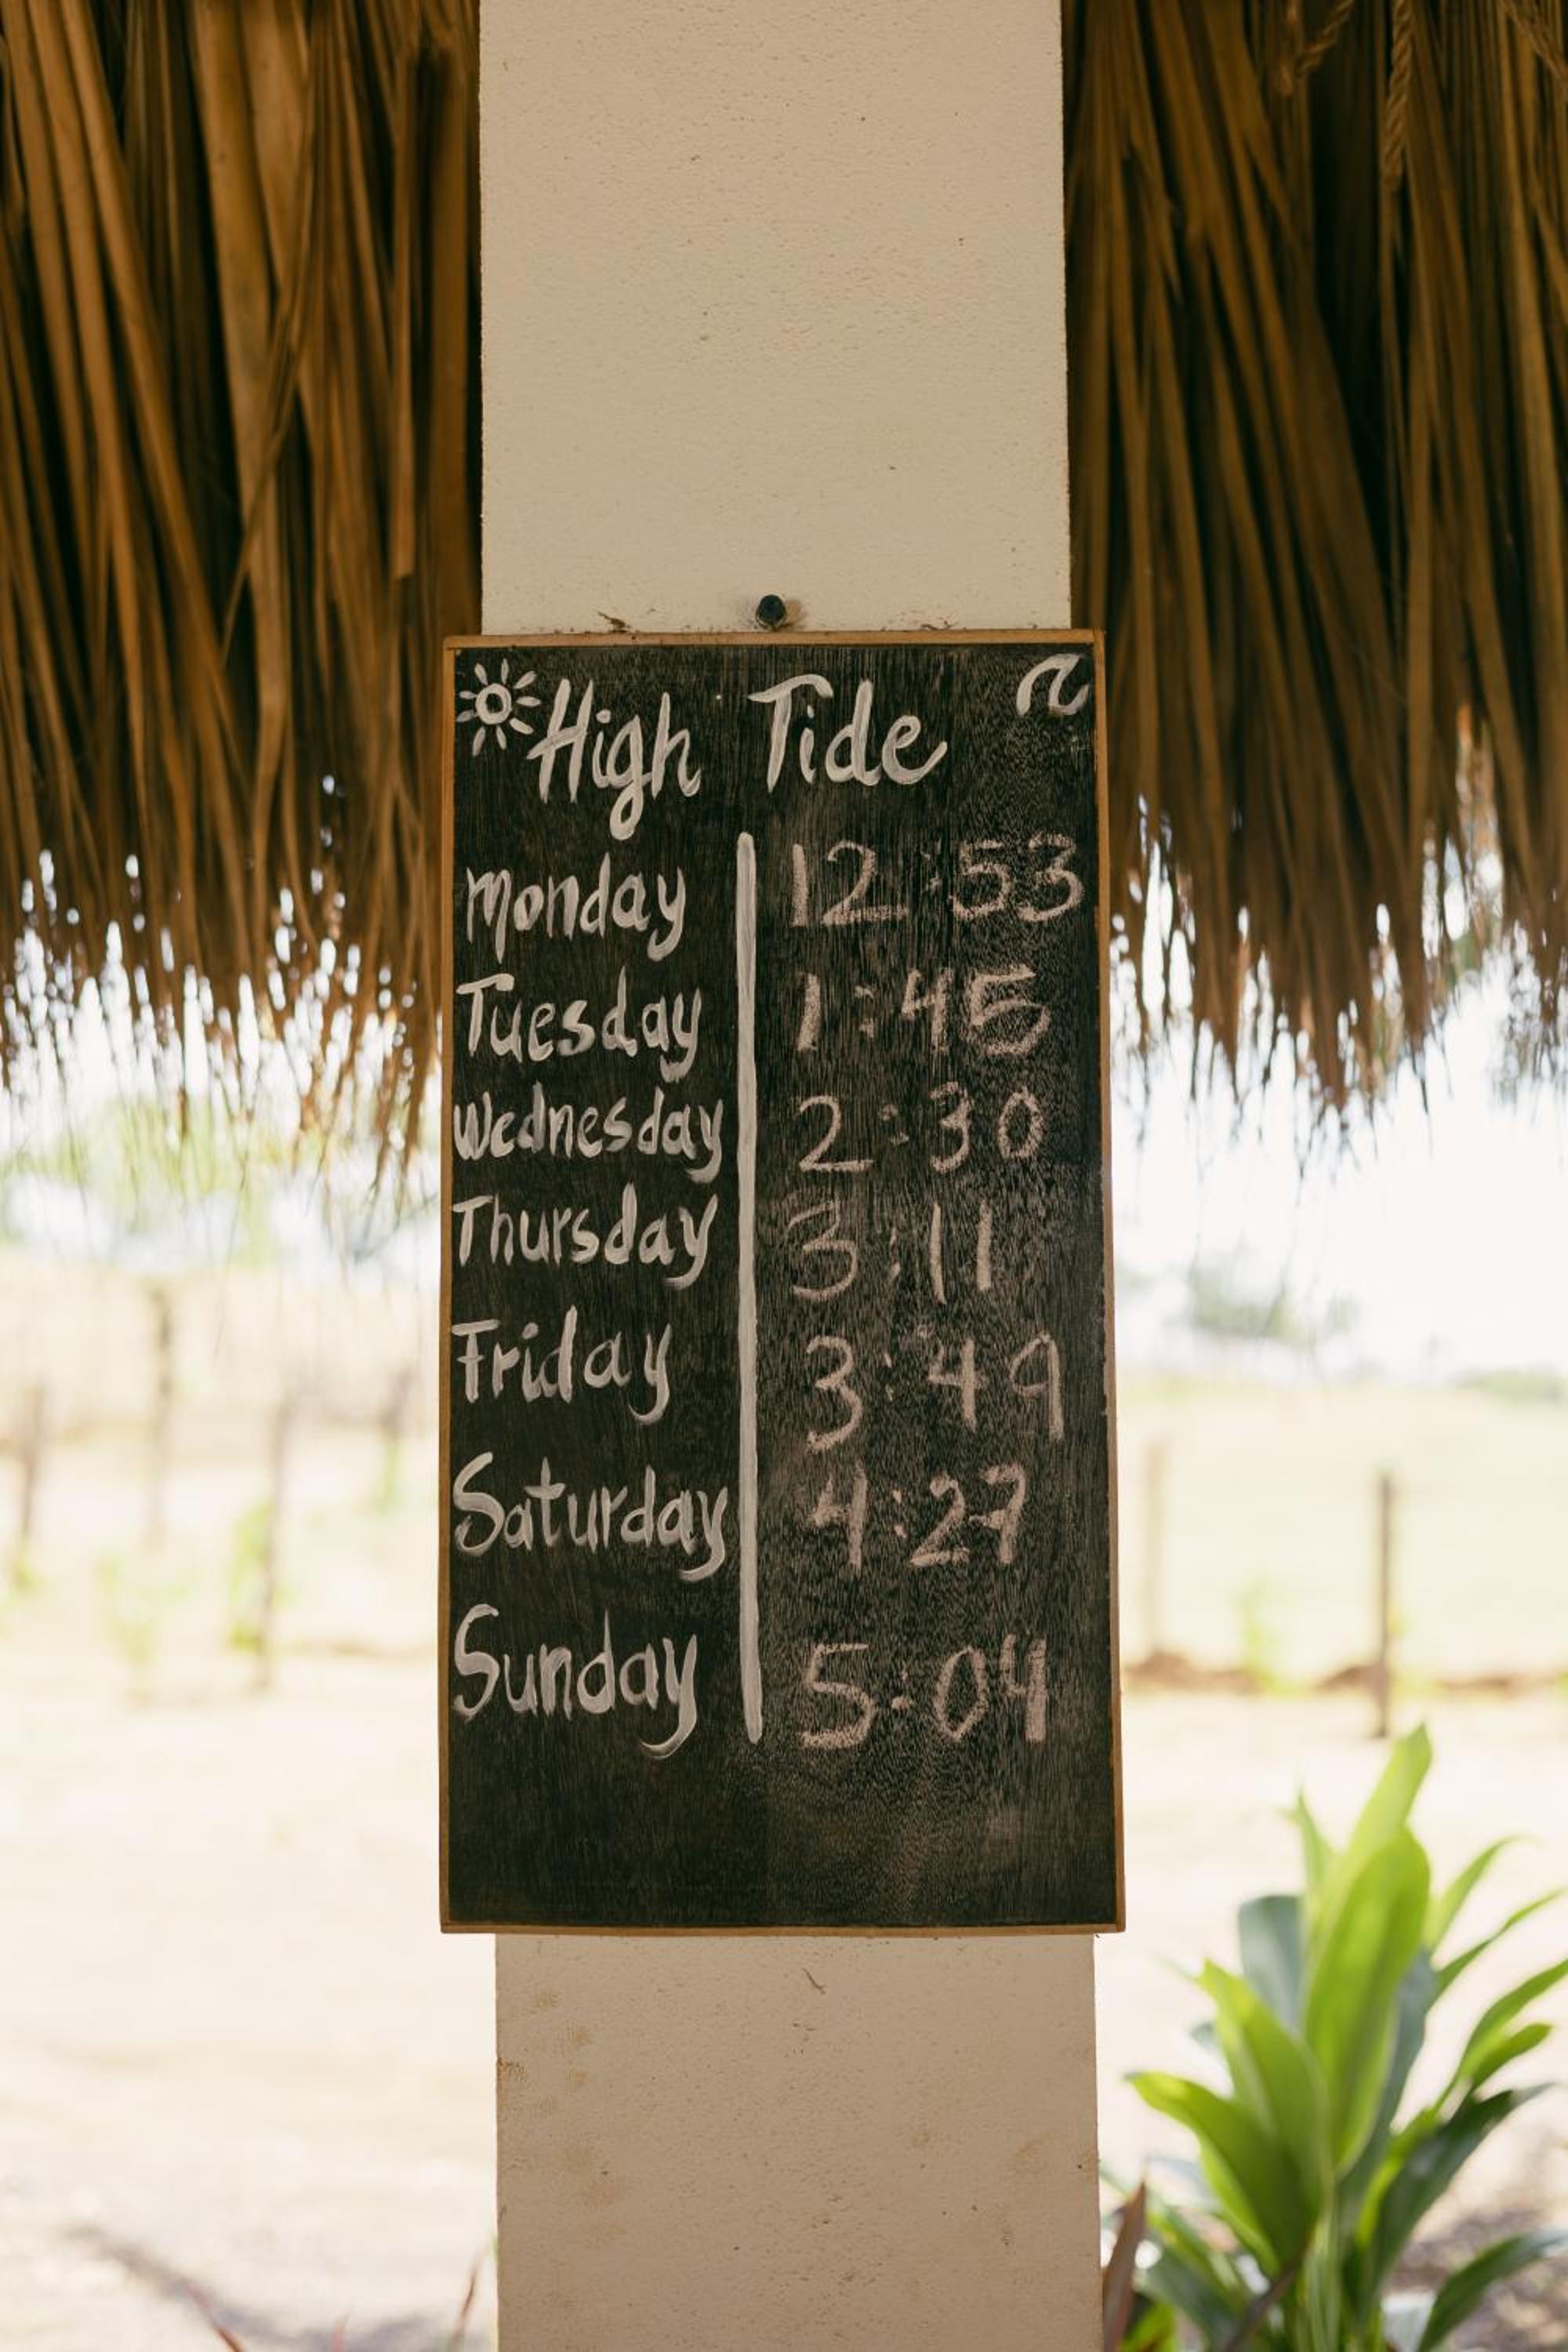 High Tide
Monday 12:53
Tuesday 1:45
Wednesday 2:30
Thursday 3:11
Friday 3:49
Saturday 4:27
Sunday 5:04